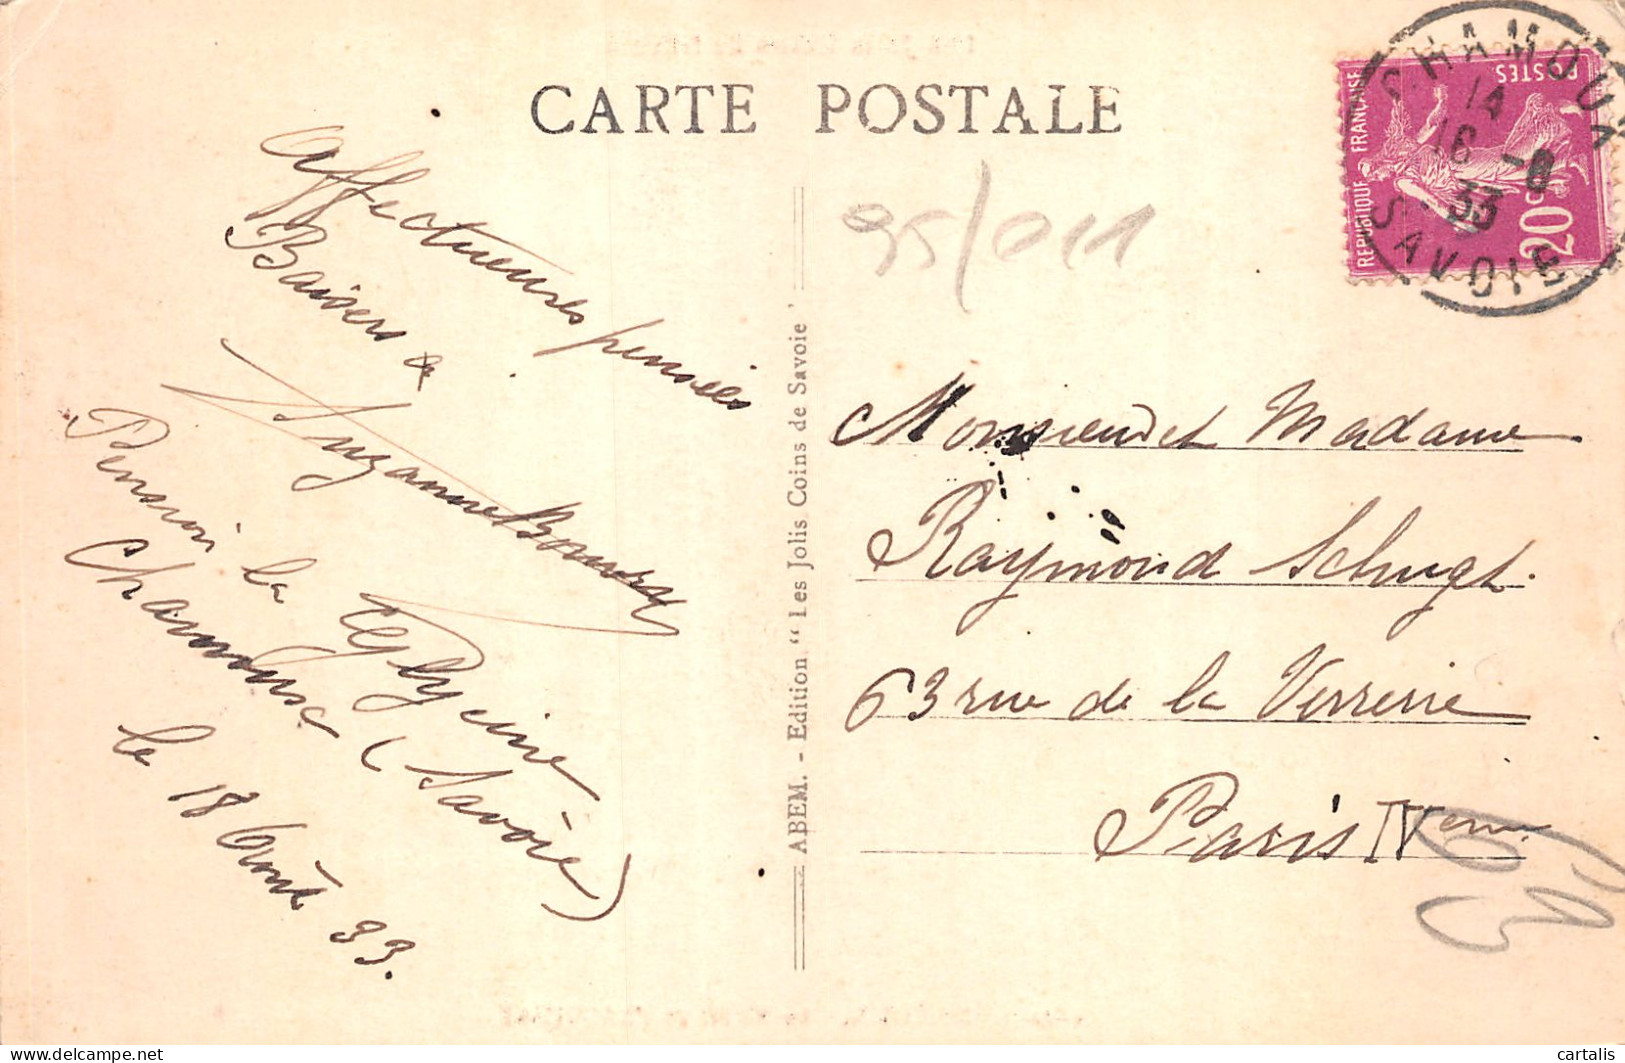 CARTE POSTALE
95/011
Affectueuses pensées
Baisers de
Suzanne
Pension la Glycine
Chamousset (Savoie)
le 18 Août 33.
ABEM. - Edition "Les Jolis Coins de Savoie"
REPUBLIQUE FRANÇAISE
POSTES
20c
CHAMOUX
14
16 -8
33
SAVOIE
Monsieur et Madame
Raymond Schugt.
63 rue de la Verrerie
Paris IVeme
63
cartalis
delcampe.net